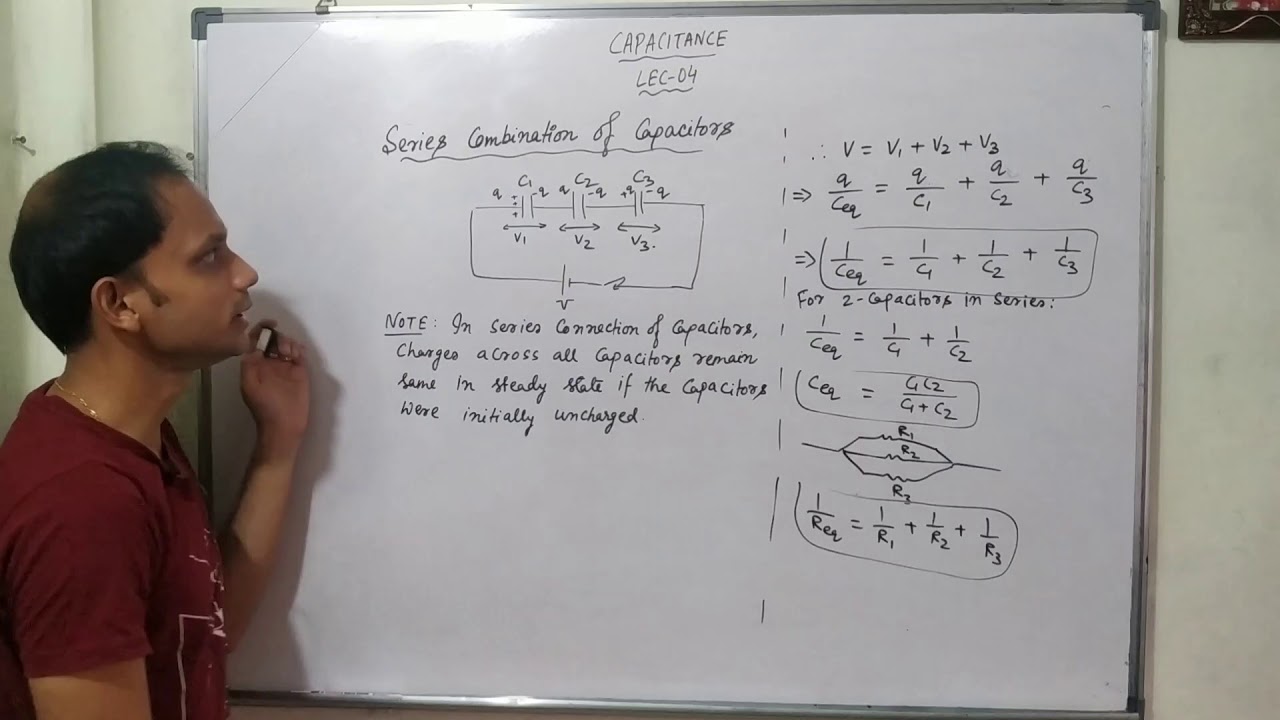 CAPACITANCE
LEC-04
Series Combination of Capacitors
C1 C2 C3
q -q q -q q -q
V1 V2 V3.
V
NOTE: In series connection of capacitors,
charges across all capacitors remain
same in steady state if the capacitors
were initially uncharged.
∴ V = V1 + V2 + V3
=> q/Ceq = q/C1 + q/C2 + q/C3
=> 1/Ceq = 1/C1 + 1/C2 + 1/C3
For 2-capacitors in series:
1/Ceq = 1/C1 + 1/C2
Ceq = C1C2/C1+C2
R1
R2
R3
1/Req = 1/R1 + 1/R2 + 1/R3